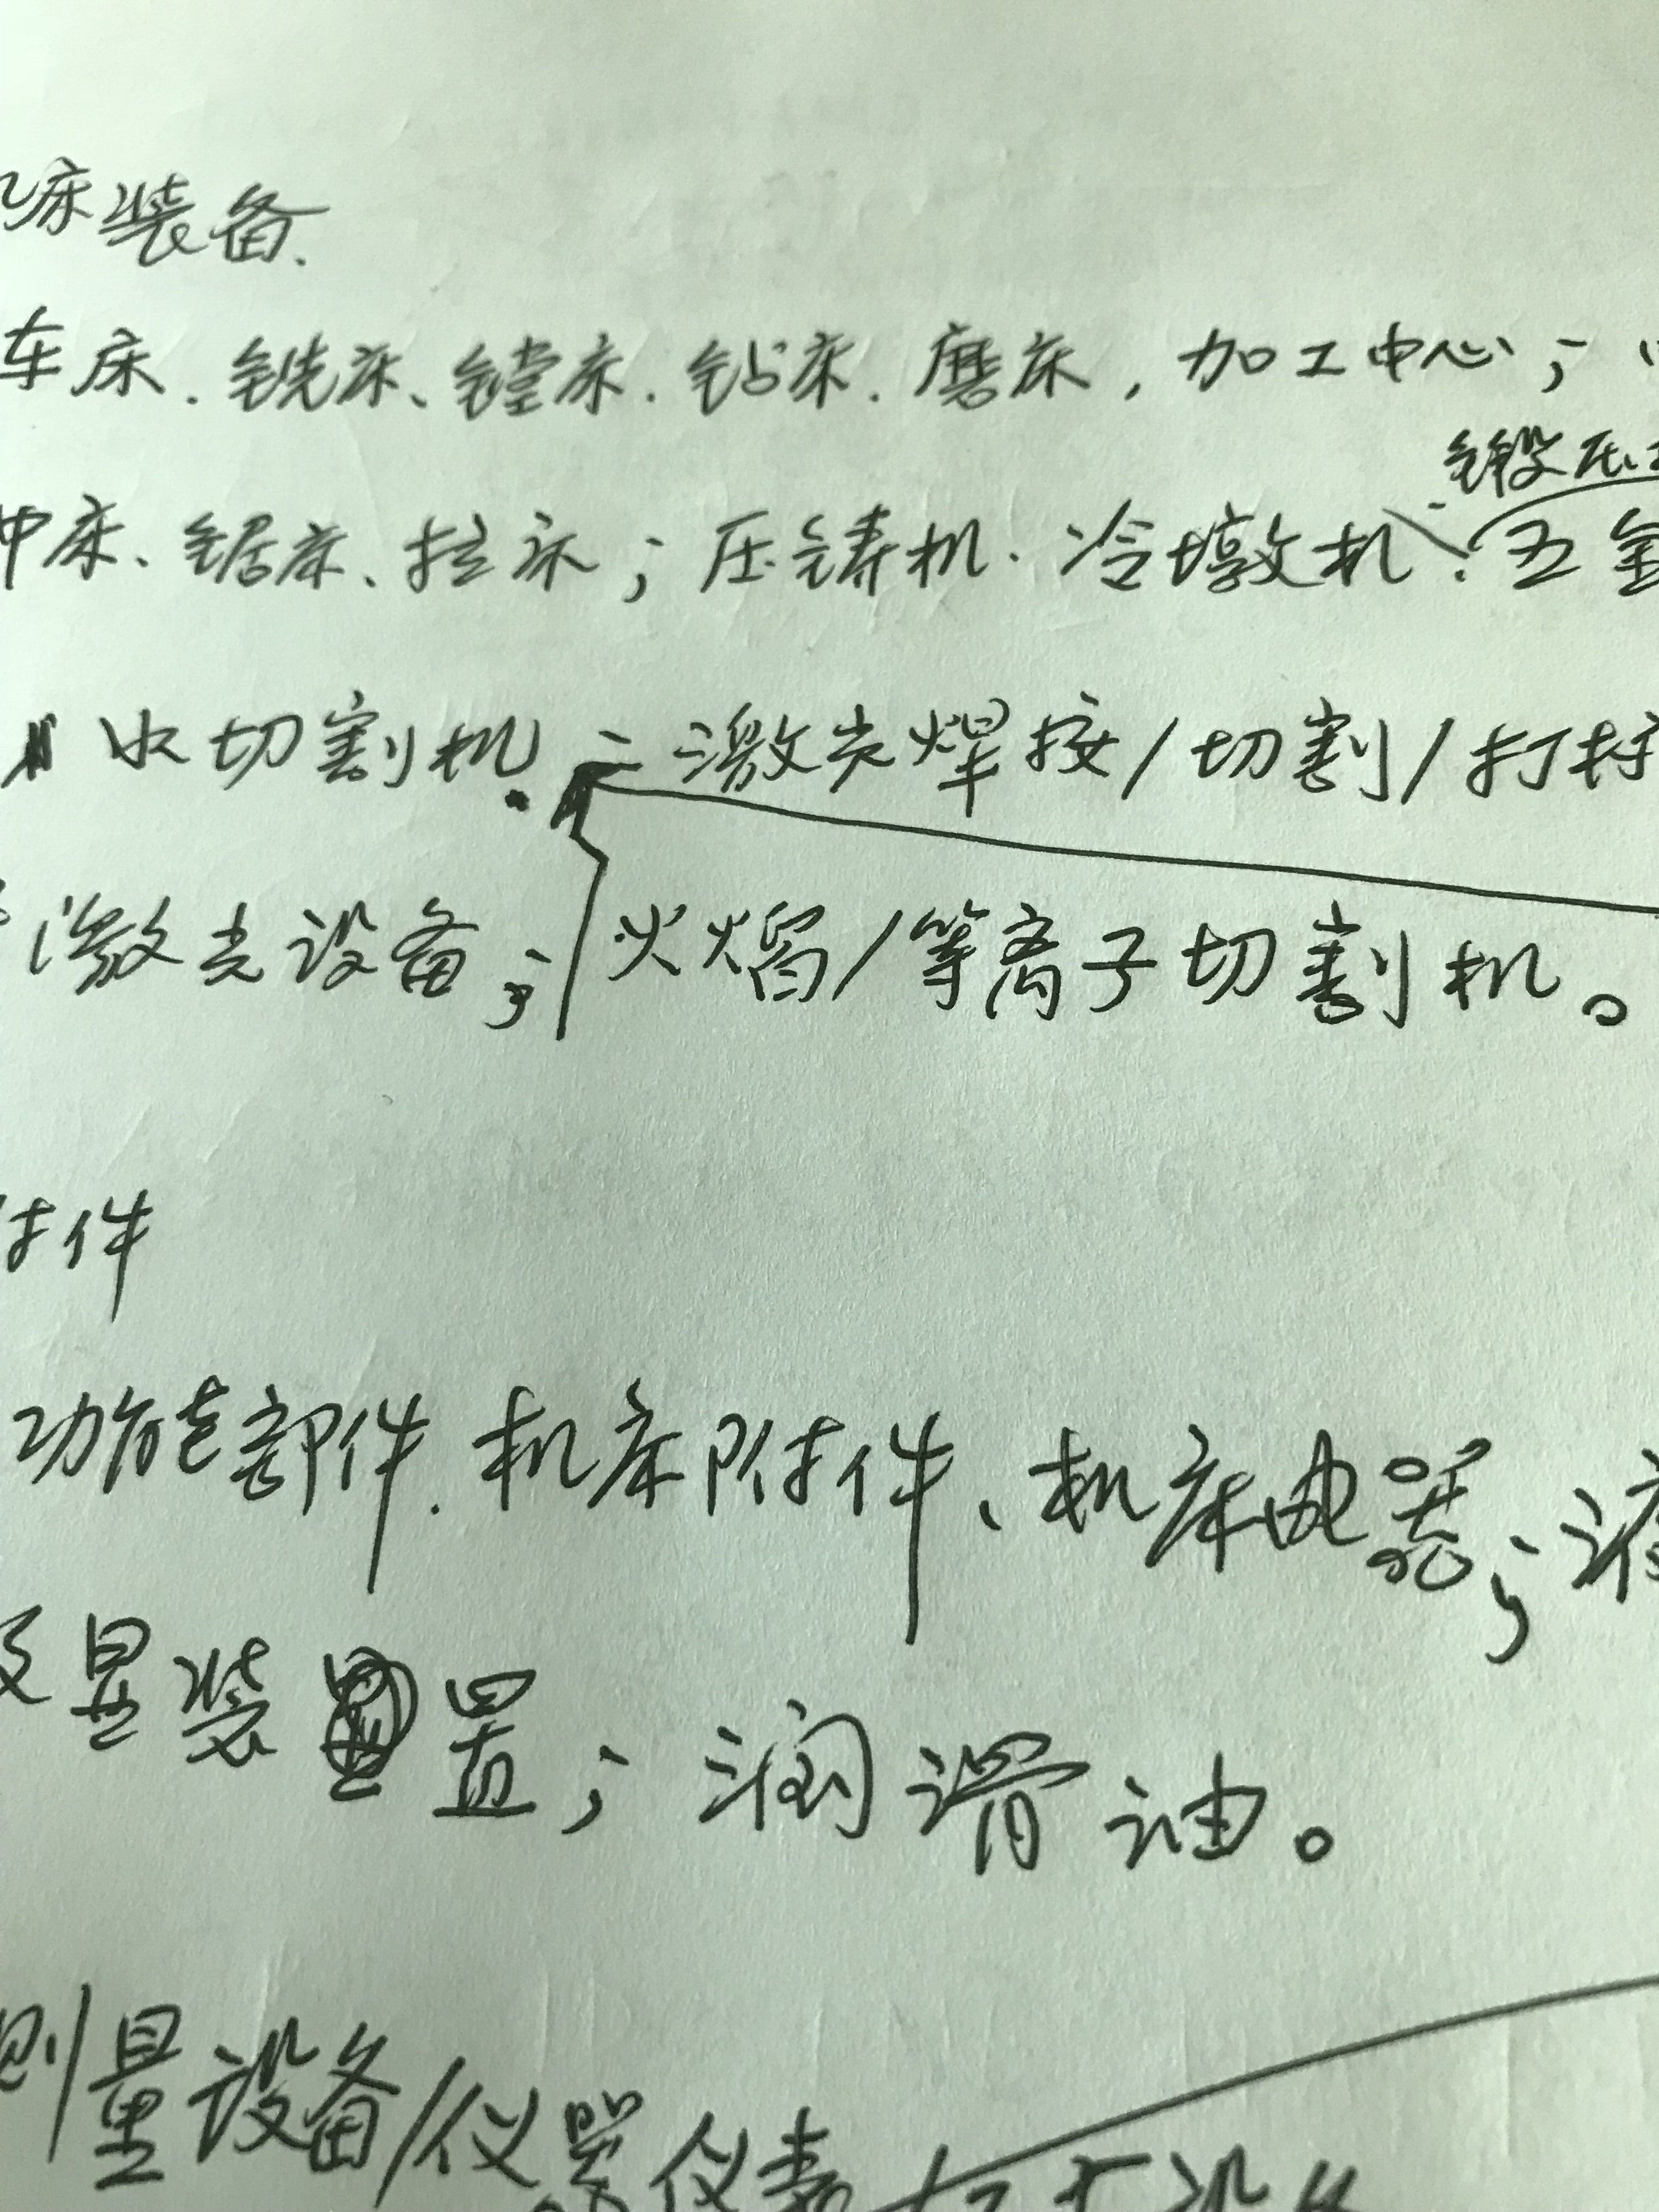 床装备.
车床.铣床、镗床.钻床.磨床,加工中心;
锻压
冲床、锯床、拉床;压铸机.冷墩机、五金
水切割机.激光焊接/切割/打标
激光设备;火焰/等离子切割机。
附件
功能部件.机床附件、机床电器;液
及显装置;润滑油。
测量设备/仪器仪表